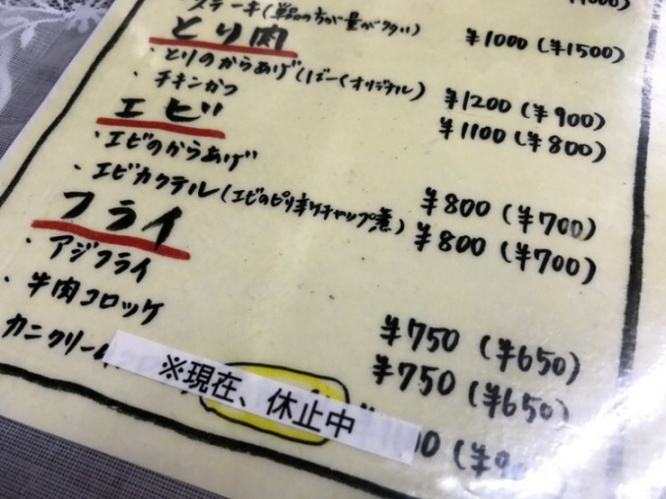 ステーキ(単品の方が量が多い) ¥1000(¥1500)
とり肉
・とりのからあげ(ばーくオリジナル) ¥1200(¥900)
・チキンかつ ¥1100(¥800)
エビ
・エビのからあげ ¥800(¥700)
・エビカクテル(エビのピリ辛ケチャップ煮) ¥800(¥700)
フライ
・アジフライ ¥750(¥650)
・牛肉コロッケ ¥750(¥650)
カニクリーム
※現在、休止中